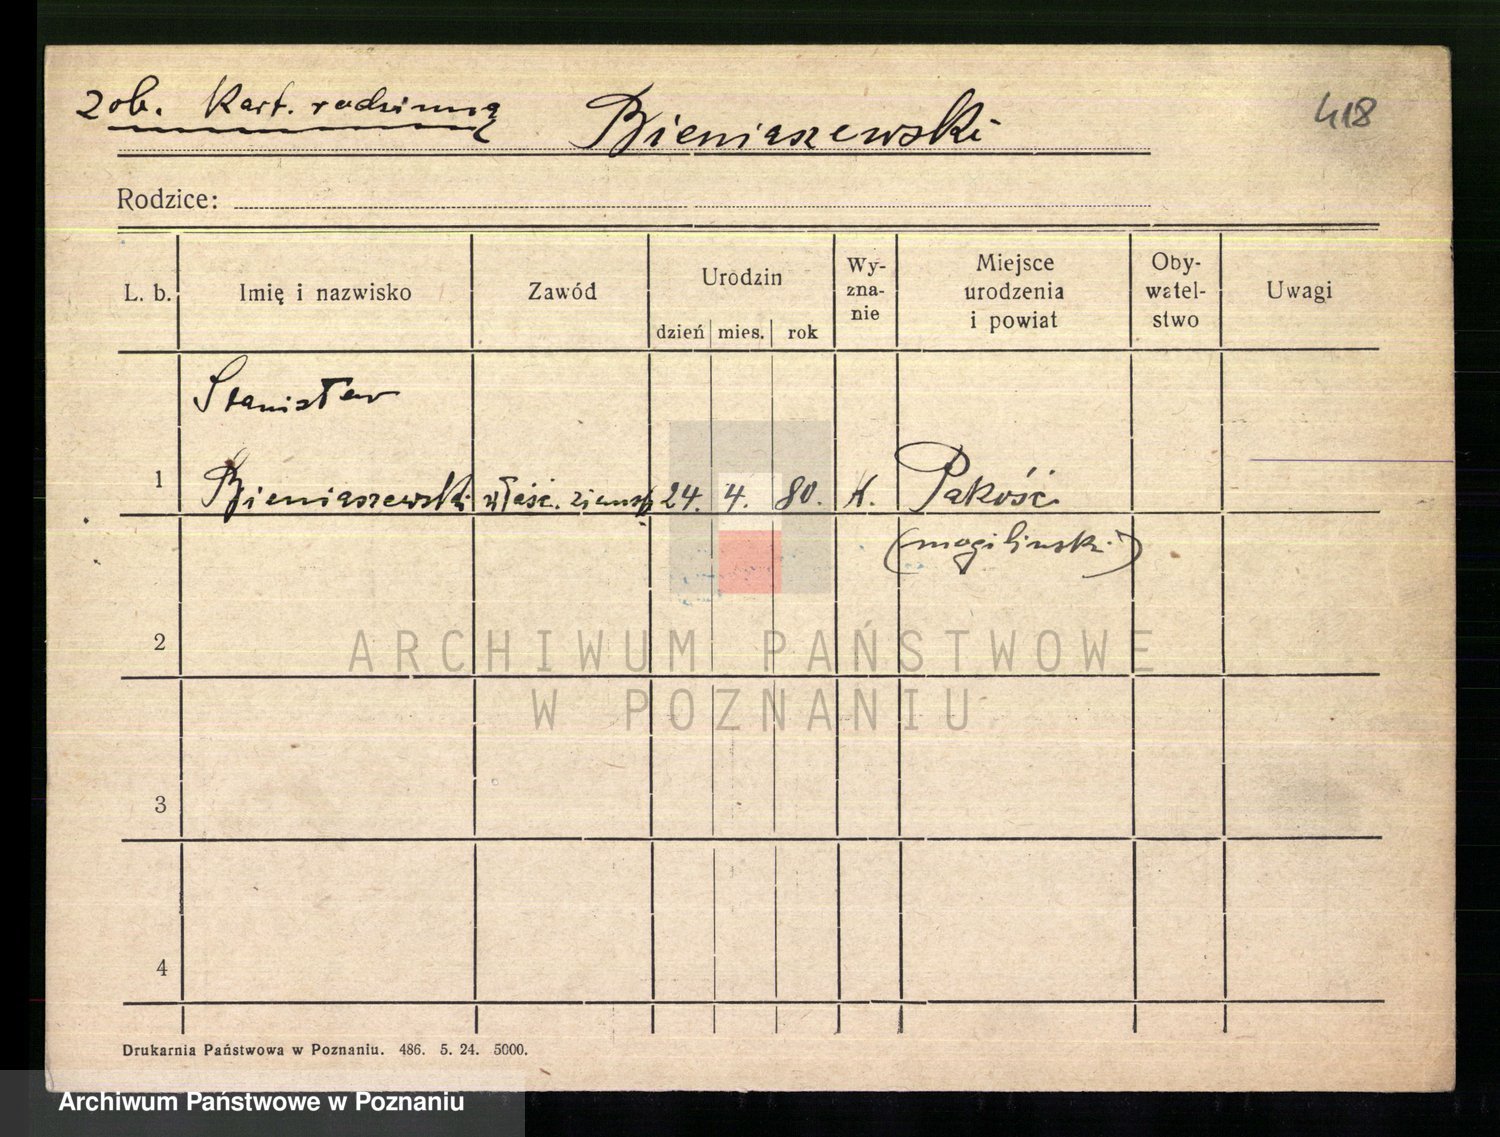 Zob. Kart. rodzinną
Bieniaszewski
418
Rodzice:
L. b.
Imię i nazwisko
Zawód
Urodzin
dzień mies. rok
Wy-
zna-
nie
Miejsce
urodzenia
i powiat
Oby-
watel-
stwo
Uwagi
Stanisław
1 Bieniaszewski właśc. ziemsk 24. 4. 80. K. Pakość
(mogilinski)
2
3
4
ARCHIWUM PAŃSTWOWE
W POZNANIU
Drukarnia Państwowa w Poznaniu. 486. 5. 24. 5000.
Archiwum Państwowe w Poznaniu